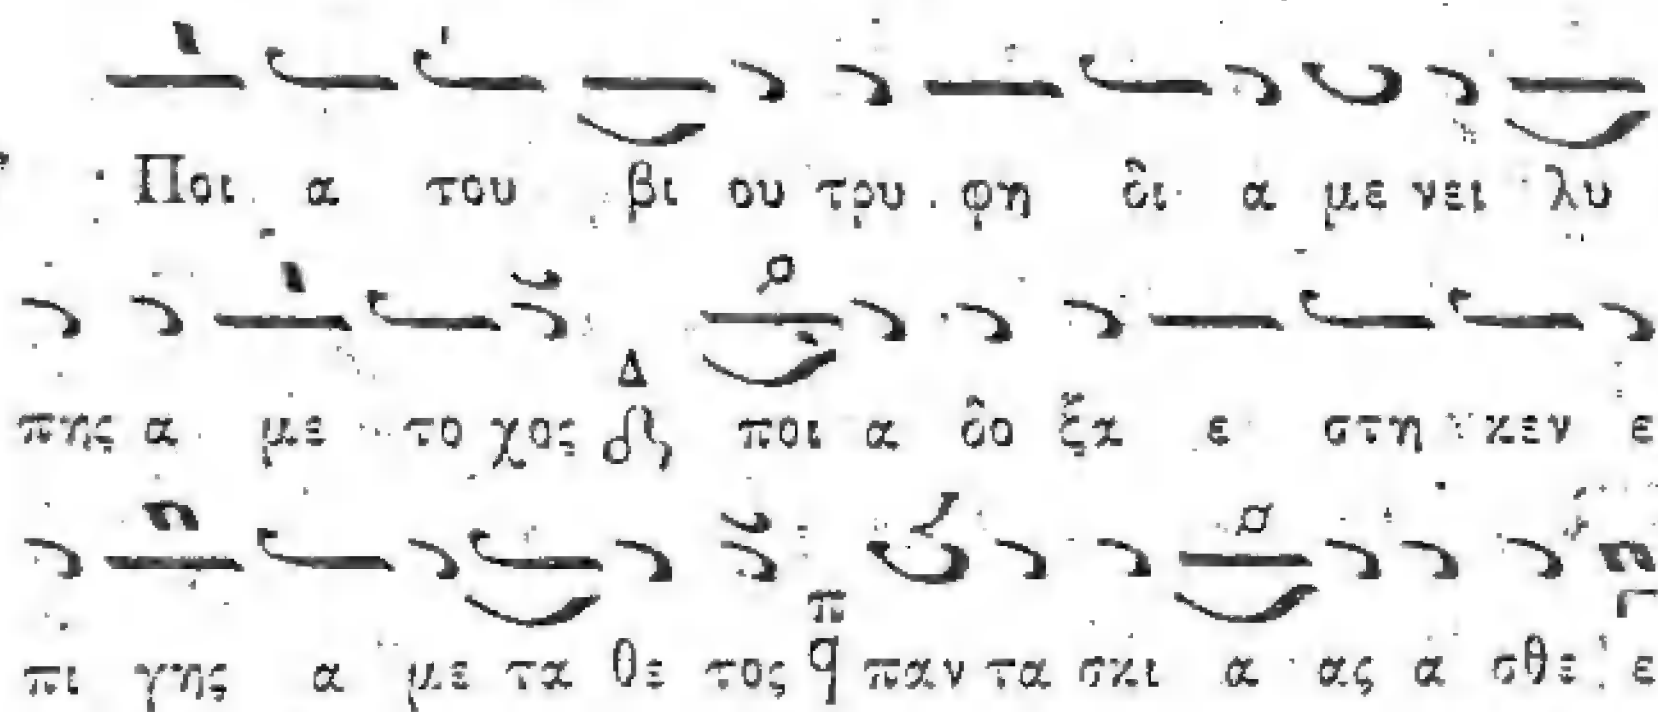 Ποι α του βι ου τρυ φη δι α με νει λυ
πης α με το χος Δ ποι α δο ξα ε στη κεν ε
πι γης α με τα θε τος π q παν τα σκι α ας α σθε ε